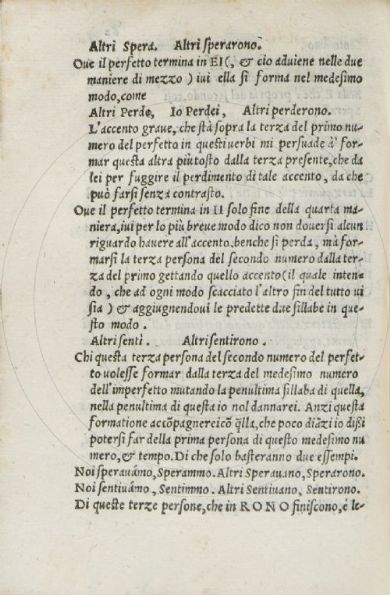 Altri Spera. Altri sperarono.
Oue il perfetto termina in EI (, & cio aduiene nelle due
maniere di mezzo) iui ella si forma nel medesimo
modo, come
Altri Perde, Io Perdei, Altri perderono.
L'accento graue, che stà sopra la terza del primo nu-
mero del perfetto in questi uerbi mi persuade à for
mar questa altra piu tosto dalla terza presente, che da
lei per fuggire il perdimento di tale accento, da che
può farsi senza contrasto.
Oue il perfetto termina in II solo fine della quarta ma-
niera, iui per lo più breue modo dico non douersi alcun
riguardo hauere all'accento. benche si perda, mà for-
marsi la terza persona del secondo numero dalla ter-
za del primo gettando quello accento (il quale inten-
do, che ad ogni modo scacciato l'altro fin del tutto ui
sia) & aggiugnendoui le predette due sillabe in que-
sto modo.
Altri sentì. Altri sentirono.
Chi questa terza persona del secondo numero del perfet-
to uolesse formar dalla terza del medesimo numero
dell'imperfetto mutando la penultima sillaba di quella,
nella penultima di questa io nol dannarei. Anzi questa
formatione accõpagnereì cõ q̃lla, che poco diãzi io dißi
potersi far della prima persona di questo medesimo nu
mero, & tempo. Di che solo basteranno due essempi.
Noi sperauámo, Sperammo. Altri Sperauano, Sperarono.
Noi sentiuámo, Sentimmo. Altri Sentiuano, Sentirono.
Di queste terze persone, che in RONO finiscono, é le-